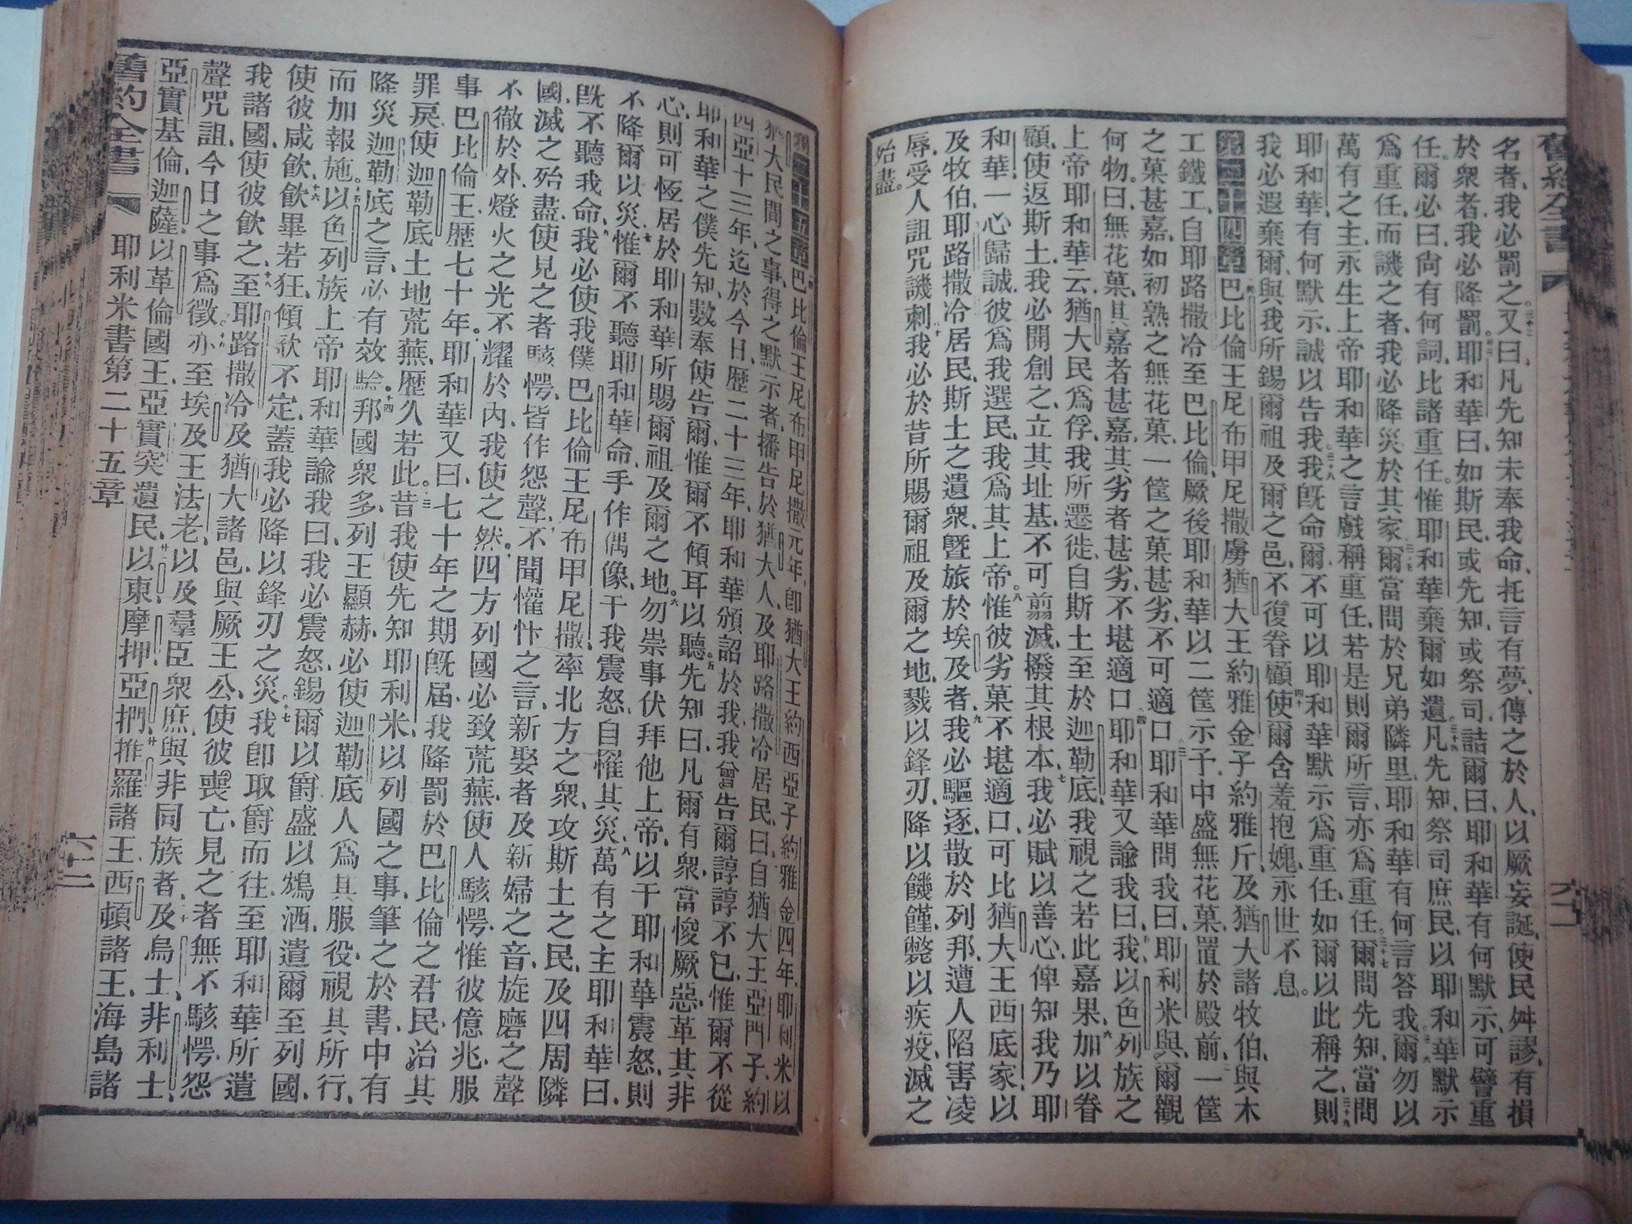 名者、我必罰之、又曰、凡先知未奉我命、托言有夢、傳之於人、以厥妄誕、使民舛謬、有損
於衆者、我必降罰、耶和華曰、如斯民、或先知、或祭司、詰爾曰、耶和華有何默示、可譬重
任、爾必曰、尙有何詞、比諸重任、惟耶和華棄爾如遺、凡先知、祭司、庶民、以耶和華默示
爲重任、而譏之者、我必降災於其家、爾當問於兄弟隣里、耶和華有何言答我、爾勿以
萬有之主、永生上帝耶和華之言、戲稱重任、若是則爾所言、亦爲重任、爾問先知、當問
耶和華有何默示、誠以告我、我旣命爾、不可以耶和華默示爲重任、如爾以此稱之、則
我必遐棄爾、與我所錫爾祖及爾之邑、不復眷顧、使爾含羞抱媿、永世不息。
第二十四章 巴比倫王尼布甲尼撒虜猶大王約雅金子約雅斤、及猶大諸牧伯、與木
工鐵工、自耶路撒冷至巴比倫、厥後耶和華以二筐示予、中盛無花菓、置於殿前、一筐
之菓甚嘉、如初熟之無花菓、一筐之菓甚劣、不可適口、耶和華問我曰、耶利米與、爾觀
何物、曰、無花菓、其嘉者甚嘉、其劣者甚劣、不堪適口、耶和華又諭我曰、我以色列族之
上帝耶和華云、猶大民爲俘、我所遷徙、自斯土至於迦勒底、我視之若此嘉果、加以眷
顧、使返斯土、我必開創之、立其址基、不可翦滅、撥其根本、我必賦以善心、俾知我乃耶
和華、一心歸誠、彼爲我選民、我爲其上帝、惟彼劣菓、不堪適口、可比猶大王西底家、以
及牧伯、耶路撒冷居民、斯土之遺衆、曁旅於埃及者、我必驅逐、散於列邦、遭人陷害凌
辱、受人詛咒譏刺、我必於昔所賜爾祖及爾之地、戮以鋒刃、降以饑饉、斃以疾疫、滅之
殆盡。
第二十五章 巴比倫王尼布甲尼撒元年、卽猶大王約西亞子約雅金四年、耶利米以
猶大民間之事、得之默示者、播告於猶大人、及耶路撒冷居民、曰、自猶大王亞門子約
西亞十三年、迄於今日、歷二十三年、耶和華頒詔於我、我曾告爾、諄諄不已、惟爾不從、
耶和華之僕先知、數奉使告爾、惟爾不傾耳以聽、先知曰、凡爾有衆、當悛厥惡、革其非
心、則可恆居於耶和華所賜爾祖及爾之地、勿崇事伏拜他上帝、以干耶和華震怒、則
不降爾以災、惟爾不聽耶和華命、手作偶像、干我震怒、自罹其災、萬有之主耶和華曰、
旣不聽我命、我必使我僕巴比倫王尼布甲尼撒、率北方之衆、攻斯土之民、及四周隣
國、滅之殆盡、使見之者駭愕、皆作怨聲、不聞懽忭之言、新娶者及新婦之音、旋磨之聲
不徹於外、燈火之光不耀於內、我使之然、四方列國必致荒蕪、使人駭愕、惟彼億兆、服
事巴比倫王、歷七十年、耶和華又曰、七十年之期旣屆、我降罰於巴比倫之君民、治其
罪戾、使迦勒底土地荒蕪、歷久若此、昔我使先知耶利米、以列國之事、筆之於書、中有
降災迦勒底之言、必有效驗、邦國衆多、列王顯赫、必使迦勒底人爲其服役、視其所行、
而加報施、以色列族上帝耶和華諭我曰、我必震怒、錫爾以爵、盛以鴆酒、遣爾至列國、
使彼咸飲、飲畢若狂、傾欹不定、蓋我必降以鋒刃之災、我卽取爵而往、至耶和華所遣
我諸國、使彼飲之、至耶路撒冷及猶大諸邑、與厥王公、使彼喪亡、見之者無不駭愕、怨
聲咒詛、今日之事爲徵、亦至埃及王法老、以及羣臣衆庶、與非同族者、及烏士、非利士、
亞實基倫、迦薩、以革倫國王、亞實突遺民、以東、摩押、亞捫、推羅諸王、西頓諸王、海島諸
舊約全書 耶利米書第二十五章 六十二